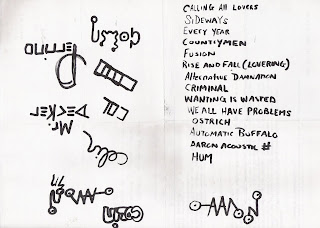 CALLING ALL LOVERS
SIDEWAYS
EVERY YEAR
COUNTRYMEN
FUSION
RISE AND FALL (LOVERING)
ALTERNATIVE DAMNATION
CRIMINAL
WANTING IS WASTED
WE ALL HAVE PROBLEMS
OSTRICH
AUTOMATIC BUFFALO
DARON ACOUSTIC #
HUM
Mr.
DECKER
Colin